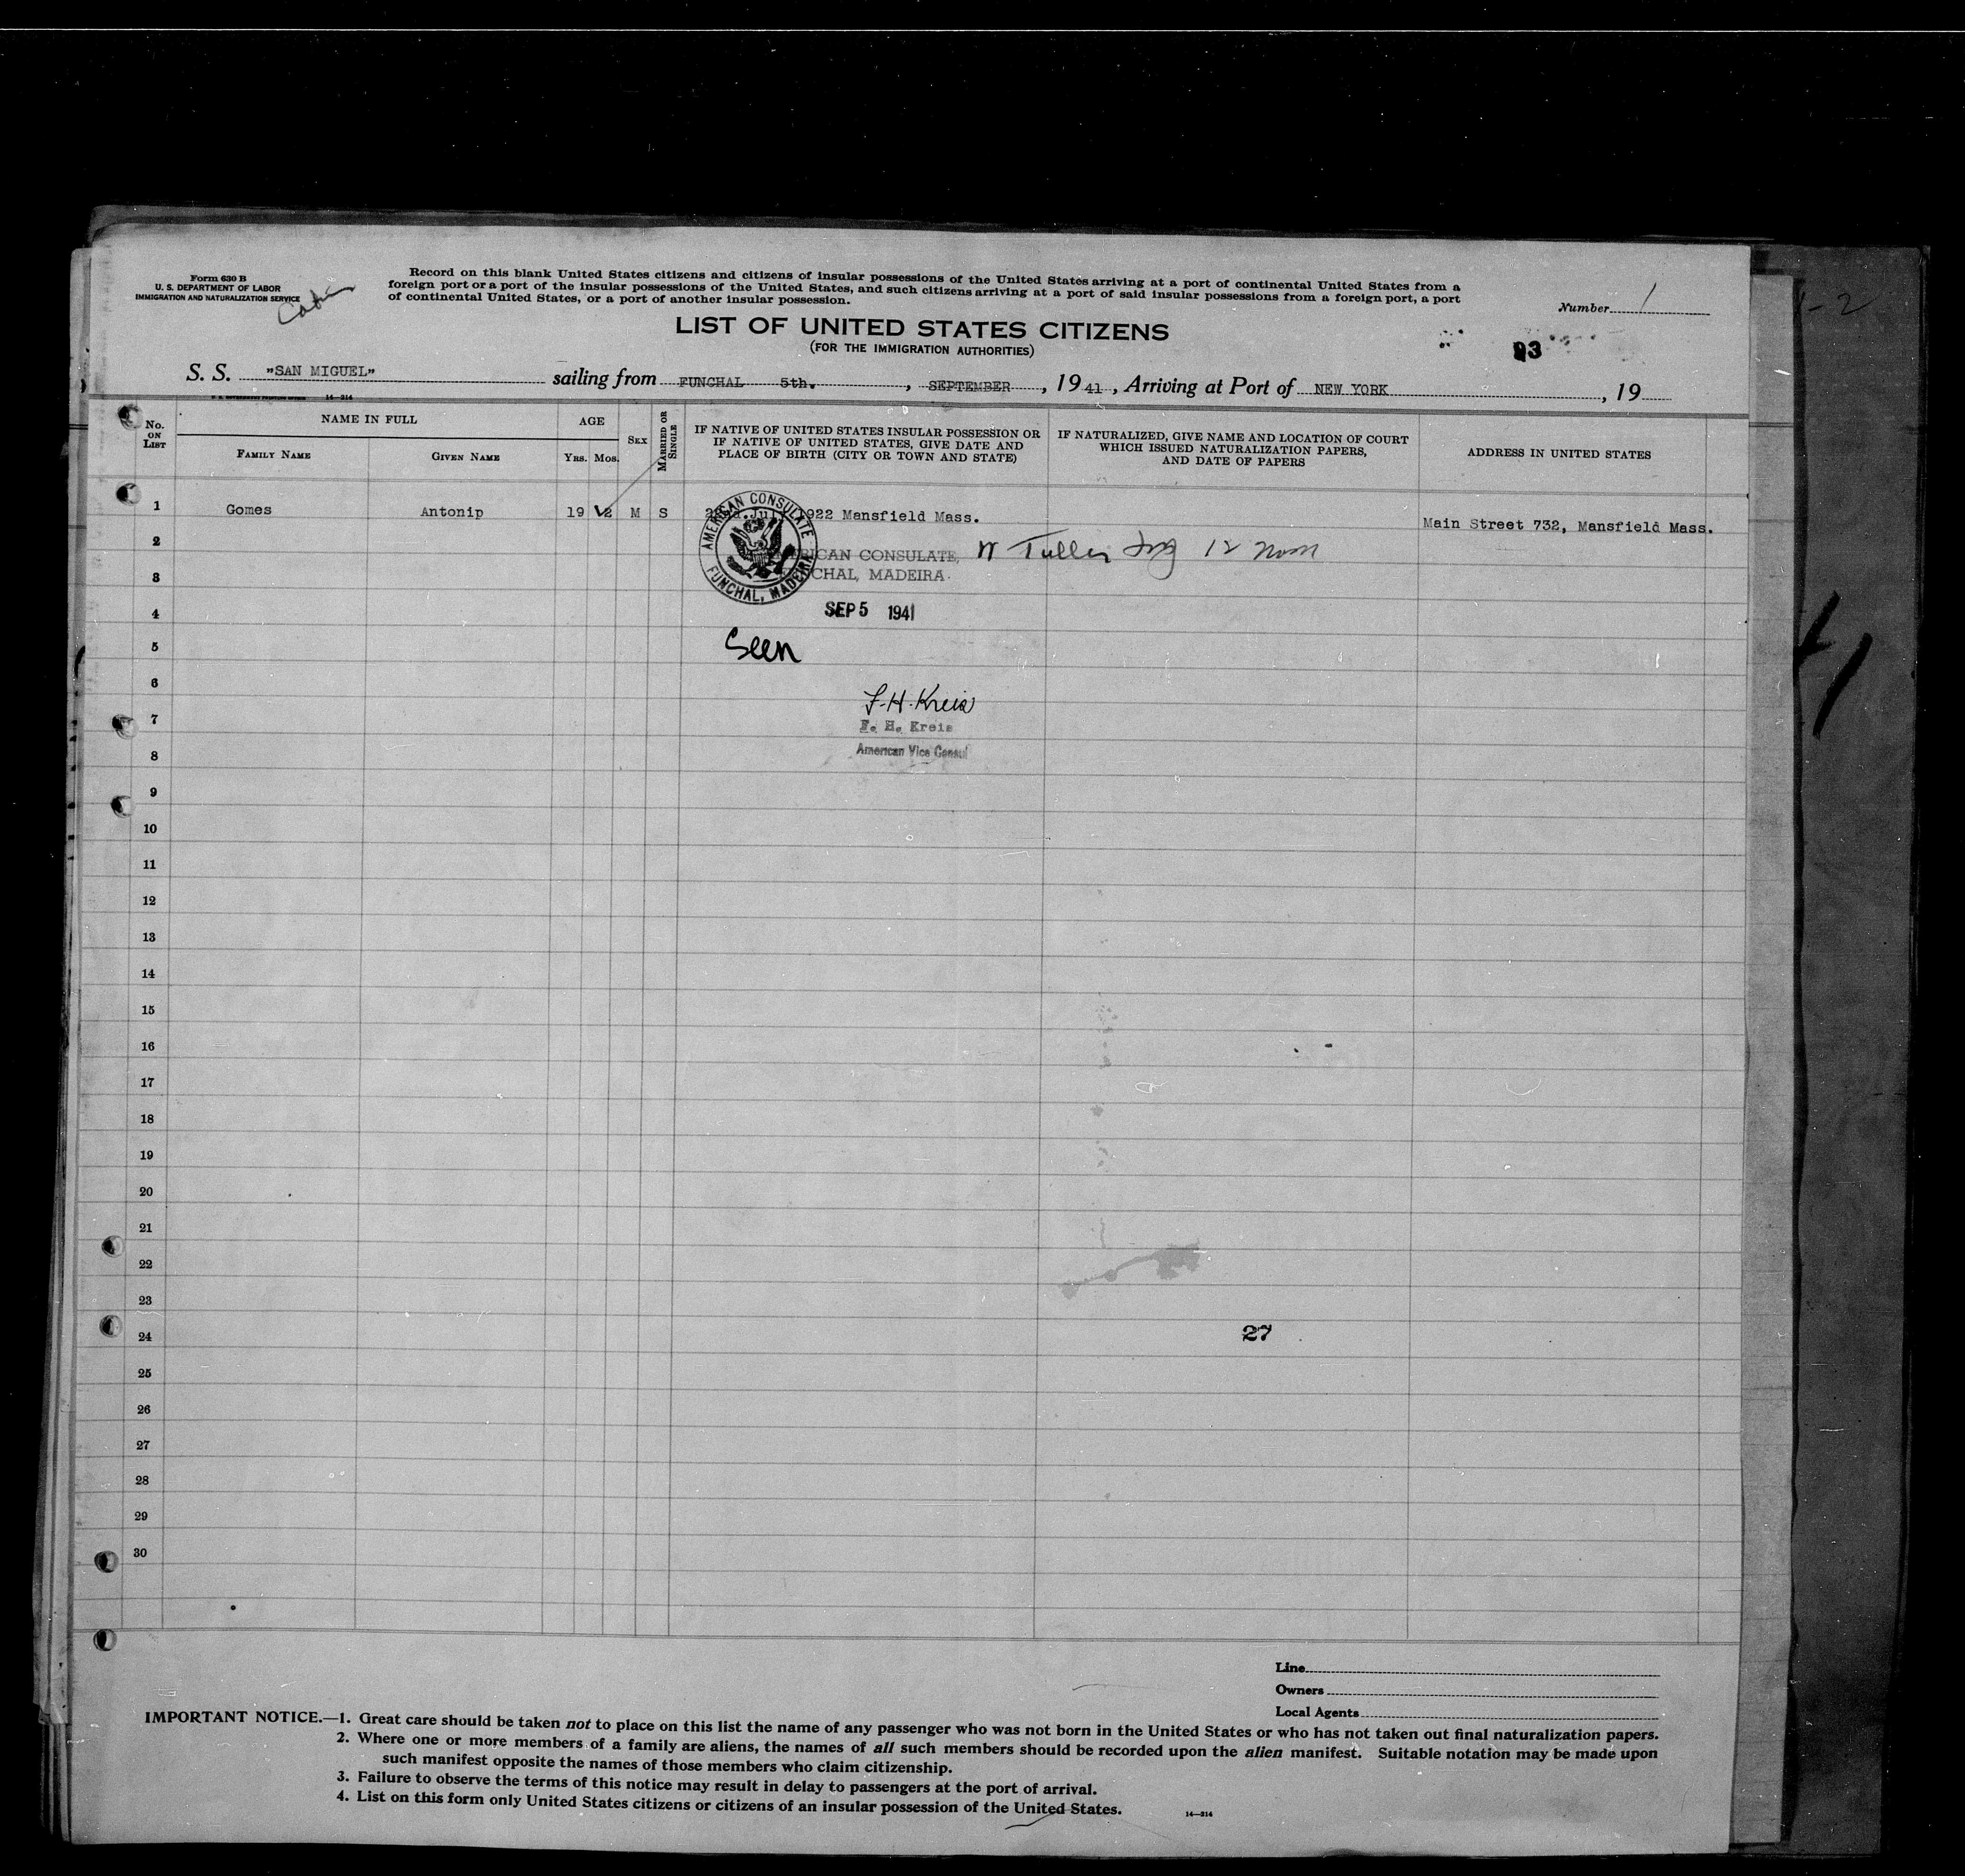 Form 630 B
U. S. DEPARTMENT OF LABOR
IMMIGRATION AND NATURALIZATION SERVICE
Cabin
Record on this blank United States citizens and citizens of insular possessions of the United States arriving at a port of continental United States from a
foreign port or a port of the insular possessions of the United States, and such citizens arriving at a port of said insular possessions from a foreign port, a port
of continental United States, or a port of another insular possession.
Number 1
LIST OF UNITED STATES CITIZENS
(FOR THE IMMIGRATION AUTHORITIES)
93
S. S. "SAN MIGUEL" sailing from FUNCHAL 5th. , SEPTEMBER , 19 41 , Arriving at Port of NEW YORK , 19
14—214
No. ON LIST
NAME IN FULL
FAMILY NAME
GIVEN NAME
AGE
YRS. MOS.
SEX
MARRIED OR SINGLE
IF NATIVE OF UNITED STATES INSULAR POSSESSION OR
IF NATIVE OF UNITED STATES, GIVE DATE AND
PLACE OF BIRTH (CITY OR TOWN AND STATE)
IF NATURALIZED, GIVE NAME AND LOCATION OF COURT
WHICH ISSUED NATURALIZATION PAPERS,
AND DATE OF PAPERS
ADDRESS IN UNITED STATES
1 Gomes Antonip 19 2 M S 1922 Mansfield Mass. Main Street 732, Mansfield Mass.
AMERICAN CONSULATE
FUNCHAL, MADEIRA
2 AMERICAN CONSULATE, 12 noon
3 FUNCHAL, MADEIRA.
4 SEP 5 1941
5 Seen
6 F. H. Kreis
7 F. H. Kreis
8 American Vice Consul
9
10
11
12
13
14
15
16
17
18
19
20
21
22
23
24 27
25
26
27
28
29
30
Line
Owners
Local Agents
IMPORTANT NOTICE.—1. Great care should be taken not to place on this list the name of any passenger who was not born in the United States or who has not taken out final naturalization papers.
2. Where one or more members of a family are aliens, the names of all such members should be recorded upon the alien manifest. Suitable notation may be made upon
such manifest opposite the names of those members who claim citizenship.
3. Failure to observe the terms of this notice may result in delay to passengers at the port of arrival.
4. List on this form only United States citizens or citizens of an insular possession of the United States.
14—214